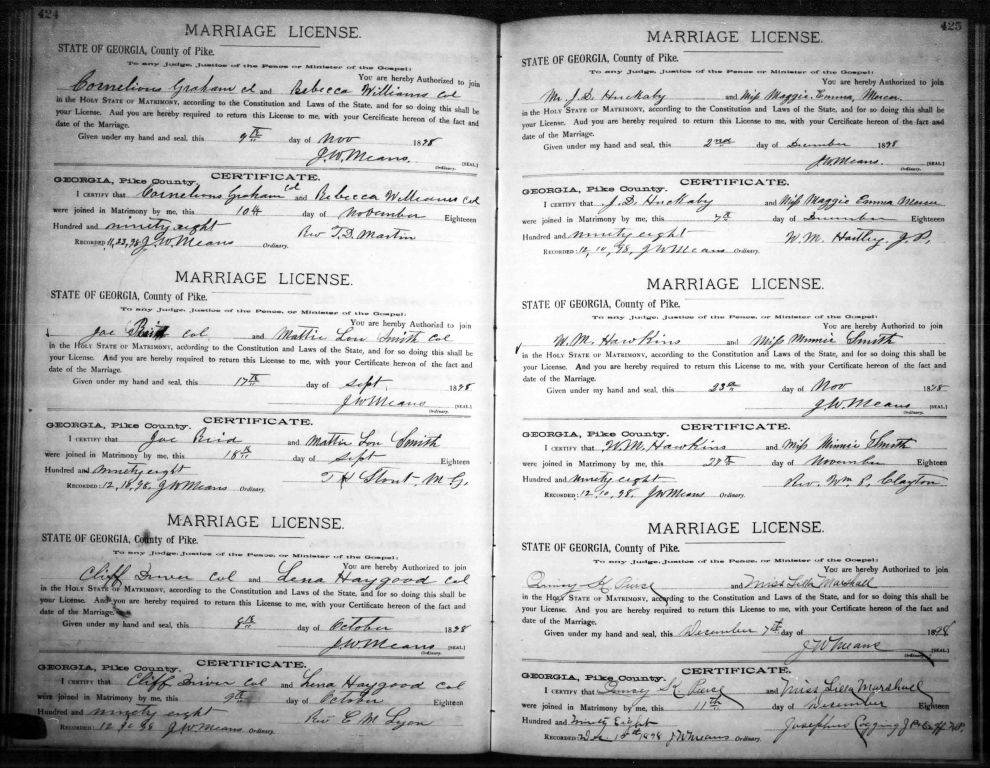 424
MARRIAGE LICENSE.
STATE OF GEORGIA, County of Pike.
To any Judge, Justice of the Peace or Minister of the Gospel:
You are hereby Authorized to join
Cornelious Graham cd and Rebecca Williams Col
in the HOLY STATE OF MATRIMONY, according to the Constitution and Laws of the State, and for so doing this shall be
your License. And you are hereby required to return this License to me, with your Certificate hereon of the fact and
date of the Marriage.
Given under my hand and seal, this 9th day of Nov 1898
J.W. Means. [SEAL.]
Ordinary.
CERTIFICATE.
GEORGIA, Pike County.
I CERTIFY that Cornelious Graham Cd and Rebecca Williams Col
were joined in Matrimony by me, this 10th day of November Eighteen
Hundred and ninety eight Rev T.D. Martin
RECORDED: 11,23,98 J.W. Means Ordinary.
MARRIAGE LICENSE.
STATE OF GEORGIA, County of Pike.
To any Judge, Justice of the Peace, or Minister of the Gospel:
You are hereby Authorized to join
Joe Col and Mattie Lou Smith Col
in the HOLY STATE OF MATRIMONY, according to the Constitution and Laws of the State, and for so doing this shall be
your License. And you are hereby required to return this License to me, with your Certificate hereon of the fact and
date of the Marriage.
Given under my hand and seal, this 17th day of Sept 1898
J.W. Means [SEAL.]
Ordinary.
CERTIFICATE.
GEORGIA, Pike County.
I CERTIFY that Joe Reid and Mattie Lou Smith
were joined in Matrimony by me, this 18th day of Sept Eighteen
Hundred and ninety eight T H Stout, M.G.
RECORDED: 12,10,98. J.W. Means Ordinary.
MARRIAGE LICENSE.
STATE OF GEORGIA, County of Pike.
To any Judge, Justice of the Peace, or Minister of the Gospel:
You are hereby Authorized to join
Cliff Driver Col and Lena Haygood Col
in the HOLY STATE OF MATRIMONY, according to the Constitution and Laws of the State, and for so doing this shall be
your License. And you are hereby required to return this License to me, with your Certificate hereon of the fact and
date of the Marriage.
Given under my hand and seal, this 8th day of October 1898
J.W. Means [SEAL.]
Ordinary.
CERTIFICATE.
GEORGIA, Pike County.
I CERTIFY that Cliff Driver Col and Lena Haygood Col
were joined in Matrimony by me, this 9th day of October Eighteen
Hundred and ninety eight Rev C.M. Lyon
RECORDED: 12 10 98 J.W. Means Ordinary.
425
MARRIAGE LICENSE.
STATE OF GEORGIA, County of Pike.
To any Judge, Justice of the Peace or Minister of the Gospel:
You are hereby Authorized to join
Mr. J.D. Huckaby and Miss Maggie Emma,
in the HOLY STATE OF MATRIMONY, according to the Constitution and Laws of the State, and for so doing this shall be
your License. And you are hereby required to return this License to me, with your Certificate hereon of the fact and
date of the Marriage.
Given under my hand and seal, this 2nd day of December 1898
J.W. Means. [SEAL.]
Ordinary.
CERTIFICATE.
GEORGIA, Pike County.
I CERTIFY that J.D. Huckaby and Miss Maggie Emma
were joined in Matrimony by me, this 7th day of December Eighteen
Hundred and ninety eight W.M. Hartley J.P.
RECORDED: 12,10,98, J.W. Means Ordinary.
MARRIAGE LICENSE.
STATE OF GEORGIA, County of Pike.
To any Judge, Justice of the Peace, or Minister of the Gospel:
You are hereby Authorized to join
W.M. Hawkins and Miss Minnie Smith
in the HOLY STATE OF MATRIMONY, according to the Constitution and Laws of the State, and for so doing this shall be
your License. And you are hereby required to return this License to me, with your Certificate hereon of the fact and
date of the Marriage.
Given under my hand and seal, this 23rd day of Nov 1898
J.W. Means [SEAL.]
Ordinary.
CERTIFICATE.
GEORGIA, Pike County.
I CERTIFY that W.M. Hawkins and Miss Minnie Smith
were joined in Matrimony by me, this 27th day of November Eighteen
Hundred and ninety eight Rev. Wm. P. Clayton
RECORDED: 12,10,98. J.W. Means Ordinary.
MARRIAGE LICENSE.
STATE OF GEORGIA, County of Pike.
To any Judge, Justice of the Peace, or Minister of the Gospel:
You are hereby Authorized to join
Pierce and Miss Lilla Marshall
in the HOLY STATE OF MATRIMONY, according to the Constitution and Laws of the State, and for so doing this shall be
your License. And you are hereby required to return this License to me, with your Certificate hereon of the fact and
date of the Marriage.
Given under my hand and seal, this December 7th day of 1898
J.W. Means [SEAL.]
Ordinary.
CERTIFICATE.
GEORGIA, Pike County.
I CERTIFY that Pierce and Miss Lilla Marshall
were joined in Matrimony by me, this 11th day of December Eighteen
Hundred and Ninety Eight Josephus
RECORDED: Dec, 15th 1898 J.W. Means Ordinary.